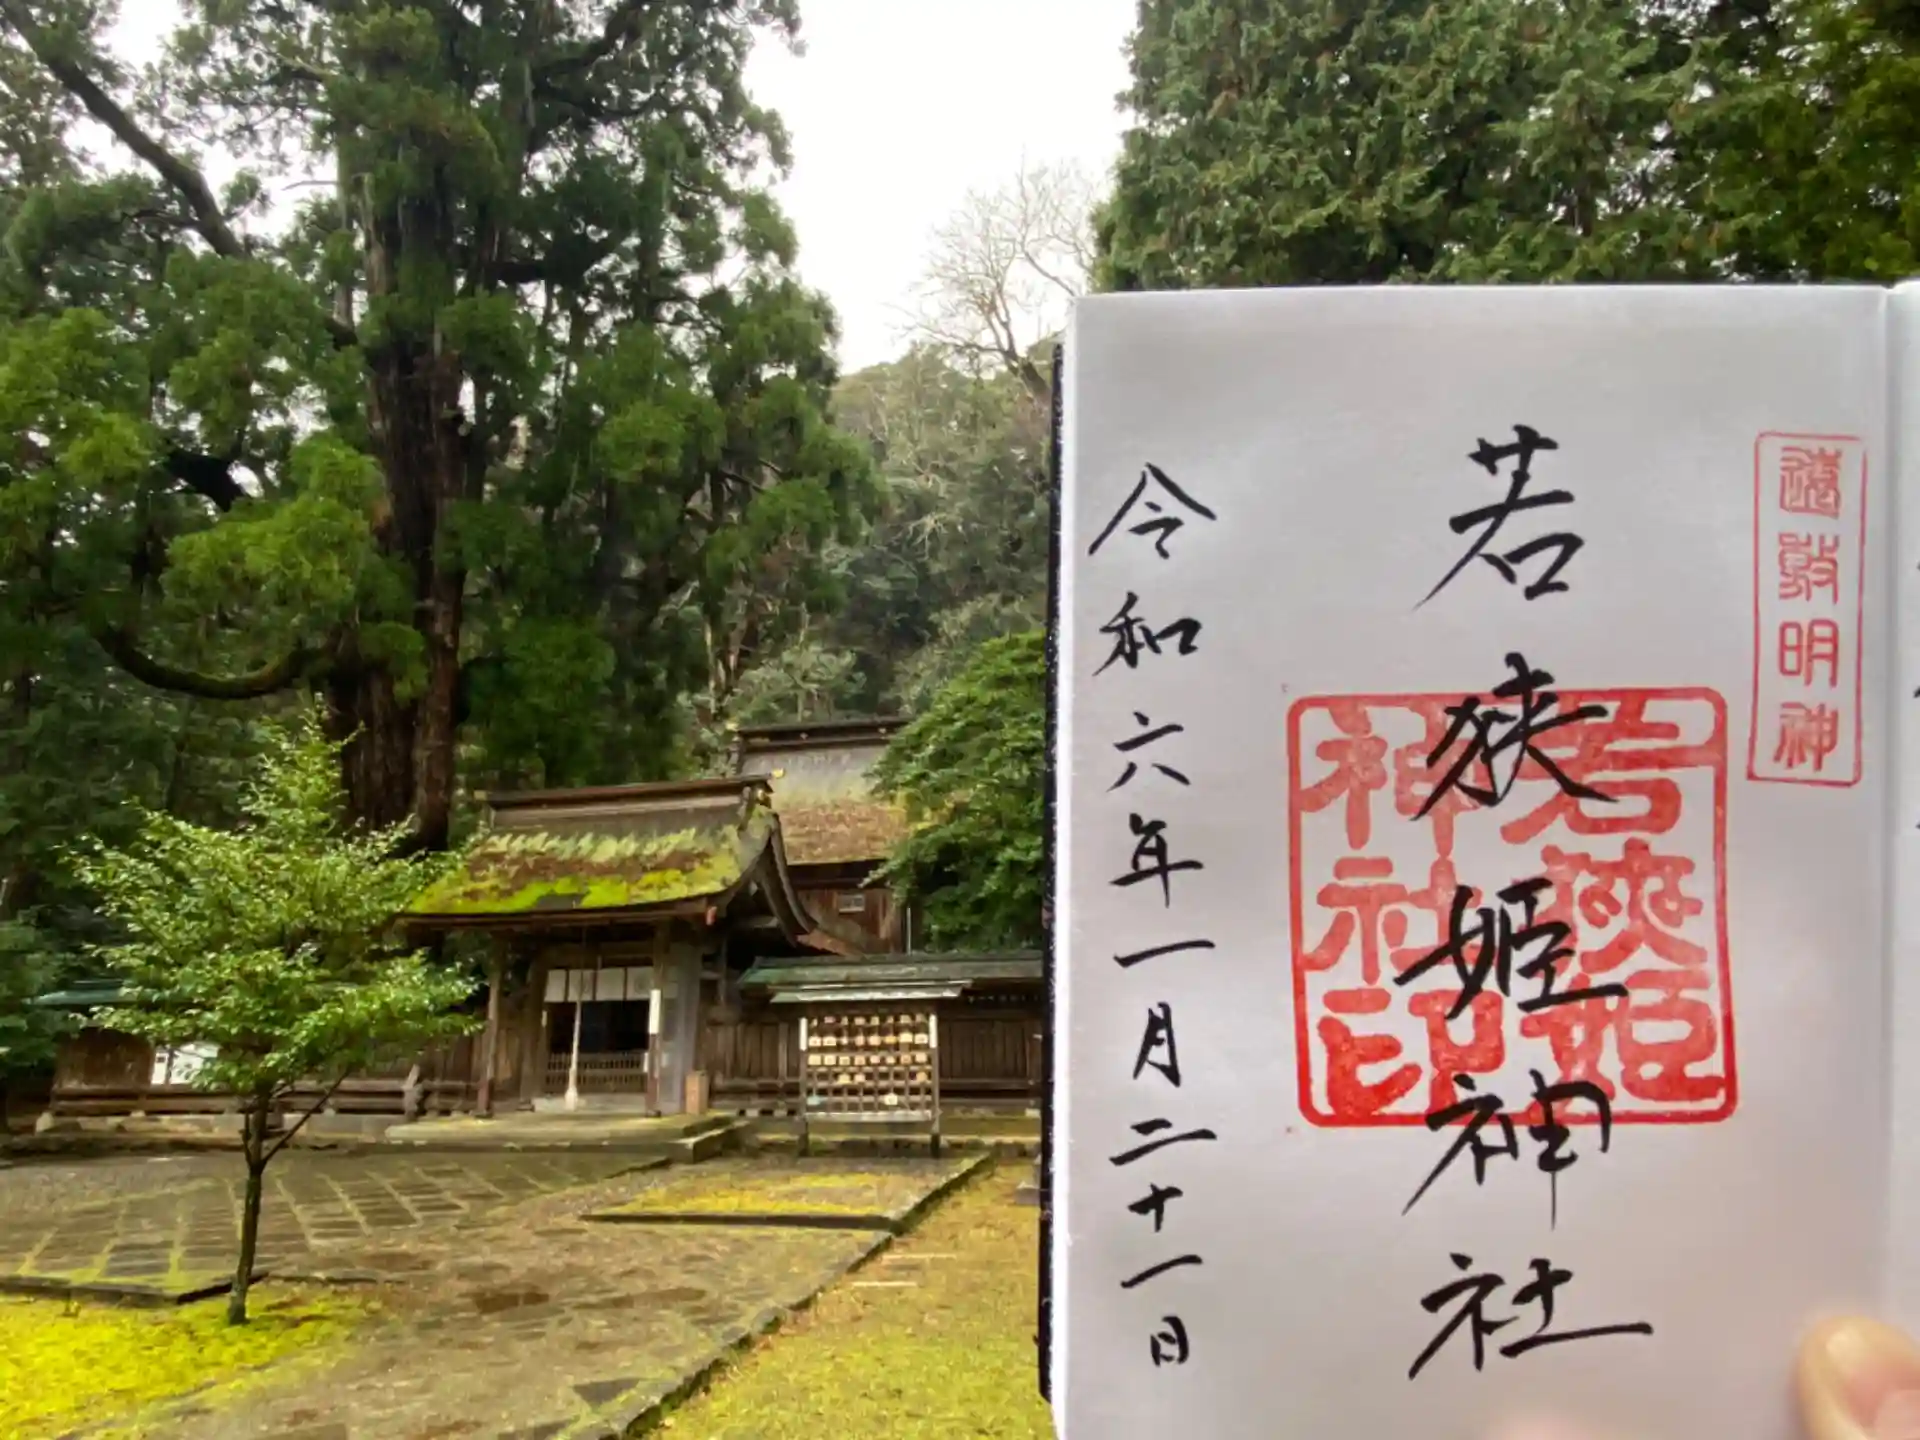 遠敷明神
若狭姫神社
若狭姫
神社印
令和六年一月二十一日